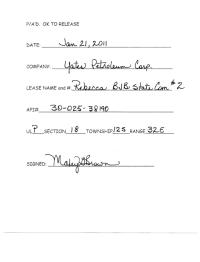 P/A'D. OK TO RELEASE
DATE: Jan 21, 2011
COMPANY: Yates Petroleum Corp.
LEASE NAME and #: Rebecca BJB State Com #2
API#: 30-025-38190
ULP SECTION 18 TOWNSHIP 12S RANGE 32E
SIGNED: